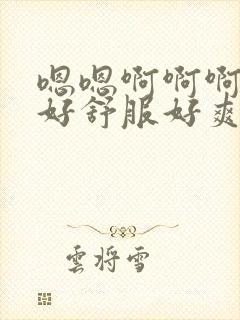 嗯嗯啊啊啊
好舒服好爽
雲將雪